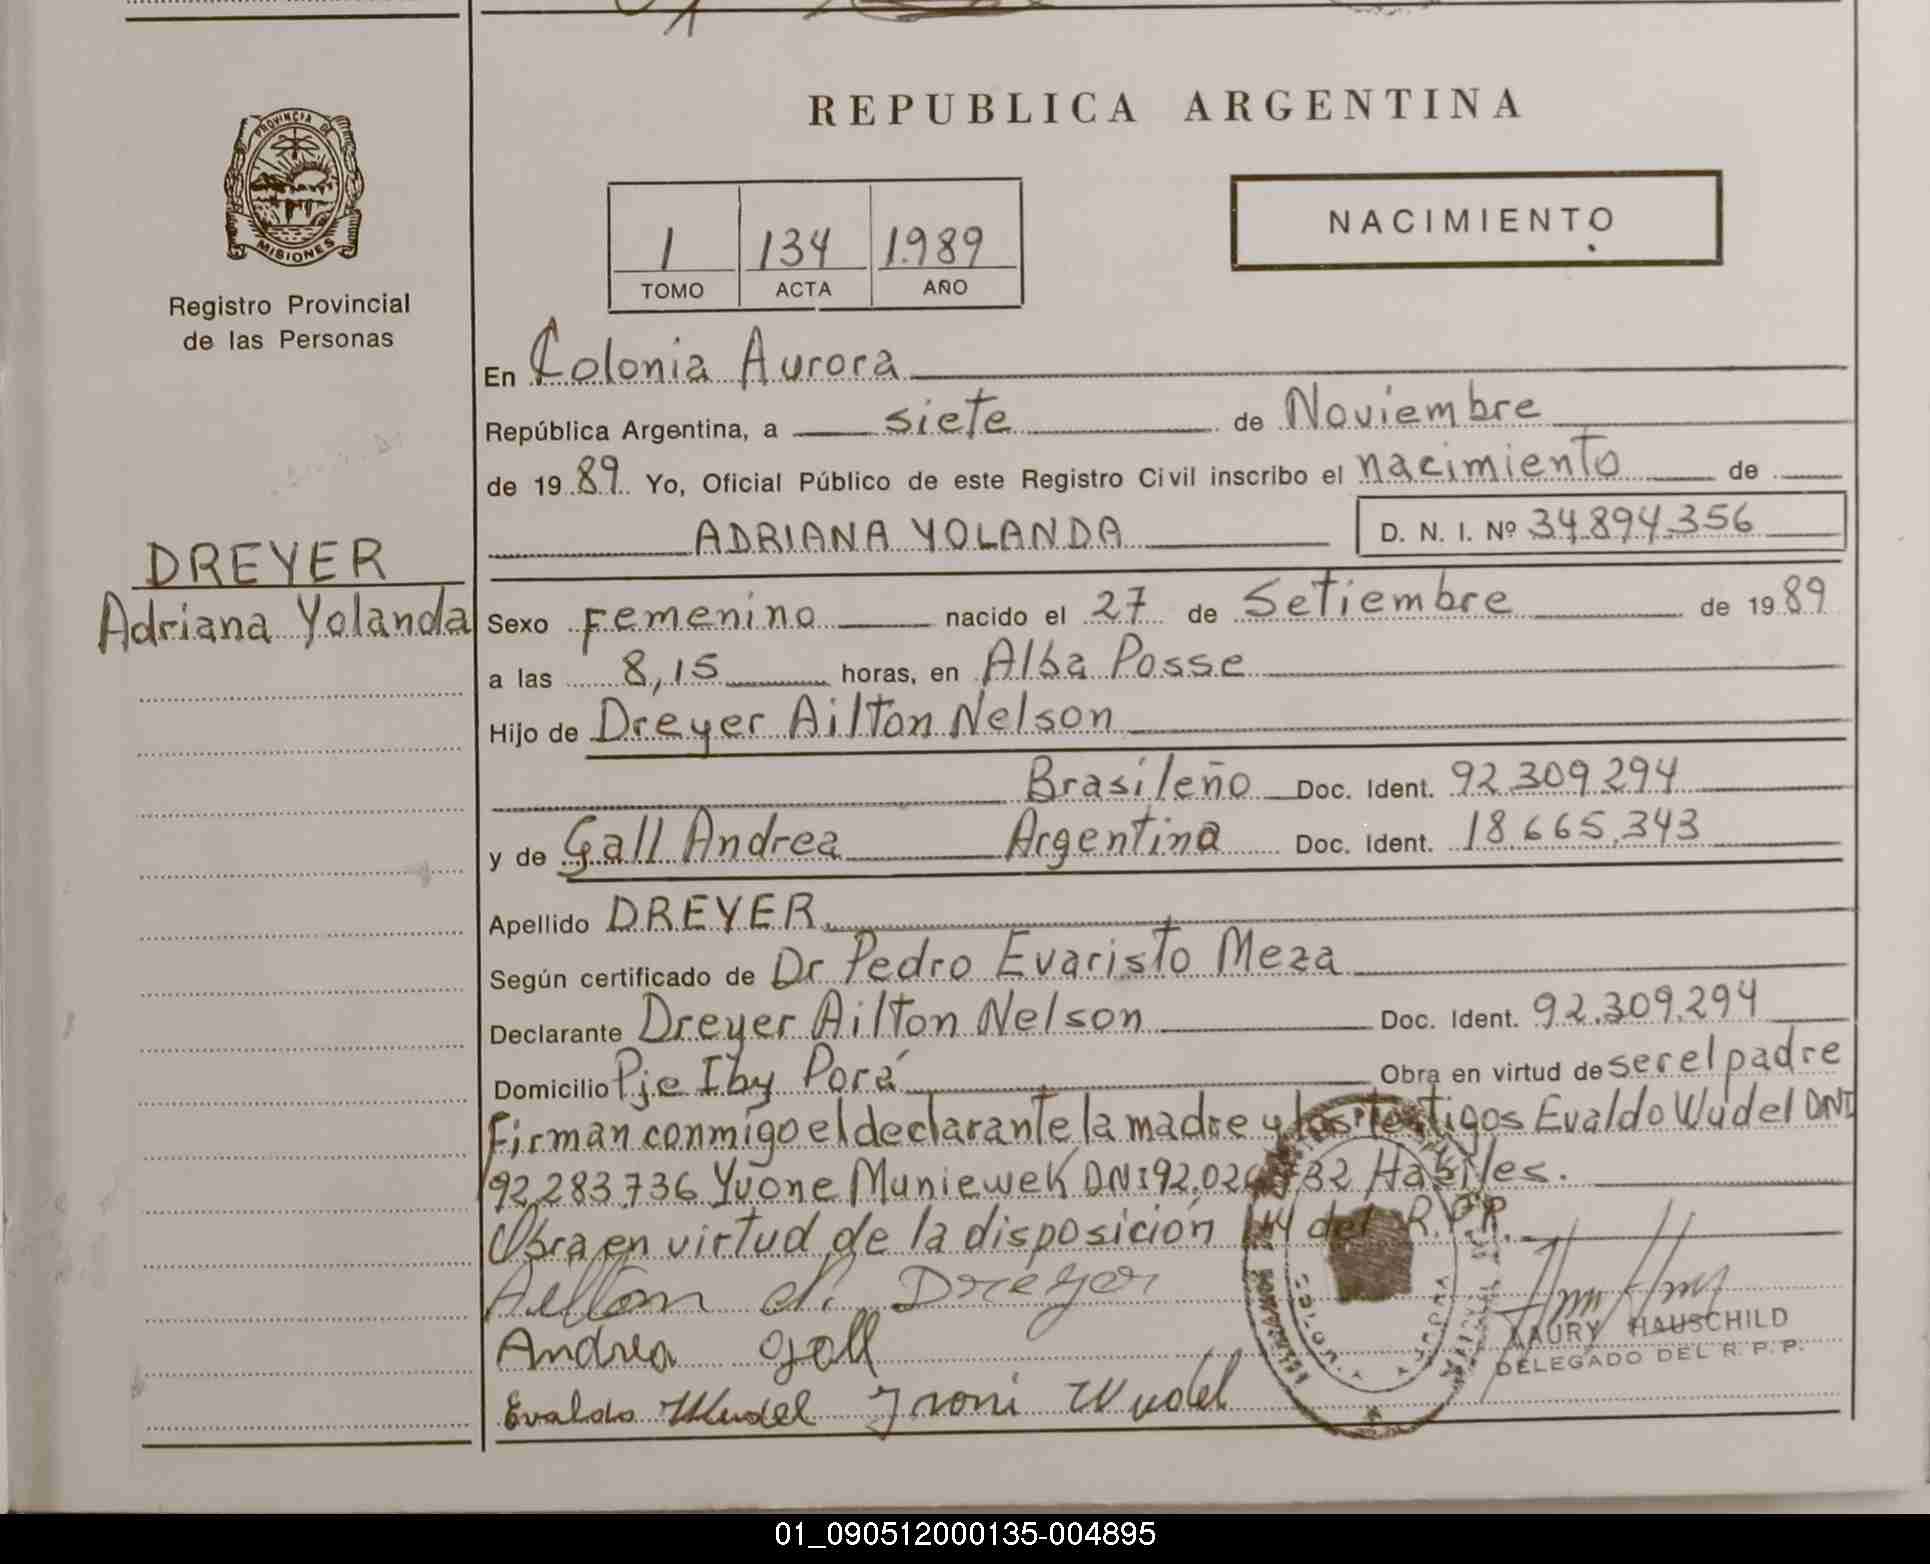 REPUBLICA ARGENTINA
PROVINCIA DE MISIONES
Registro Provincial
de las Personas
1 134 1.989
TOMO ACTA AÑO
NACIMIENTO
En Colonia Aurora
República Argentina, a siete de Noviembre
de 1989. Yo, Oficial Público de este Registro Civil inscribo el nacimiento de
ADRIANA YOLANDA D. N. I. Nº 34.894.356
DREYER
Adriana Yolanda
Sexo Femenino nacido el 27 de Setiembre de 1989
a las 8,15 horas, en Alba Posse
Hijo de Dreyer Ailton Nelson
Brasileño Doc. Ident. 92.309.294
y de Gall Andrea Argentina Doc. Ident. 18.665.343
Apellido DREYER
Según certificado de Dr Pedro Evaristo Meza
Declarante Dreyer Ailton Nelson Doc. Ident. 92.309.294
Domicilio Pje Iby Porá Obra en virtud de ser el padre
Firman conmigo el declarante la madre y los testigos Evaldo Wudel DNI
92.283.736 Yvone Muniewek DNI 92.02 32 Habiles.
Obra en virtud de la disposición del R.P.P.
Ailton N. Dreyer
Andrea Gall
Evaldo Wudel Ironi Wudel
AAURY HAUSCHILD
DELEGADO DEL R. P. P.
01_090512000135-004895